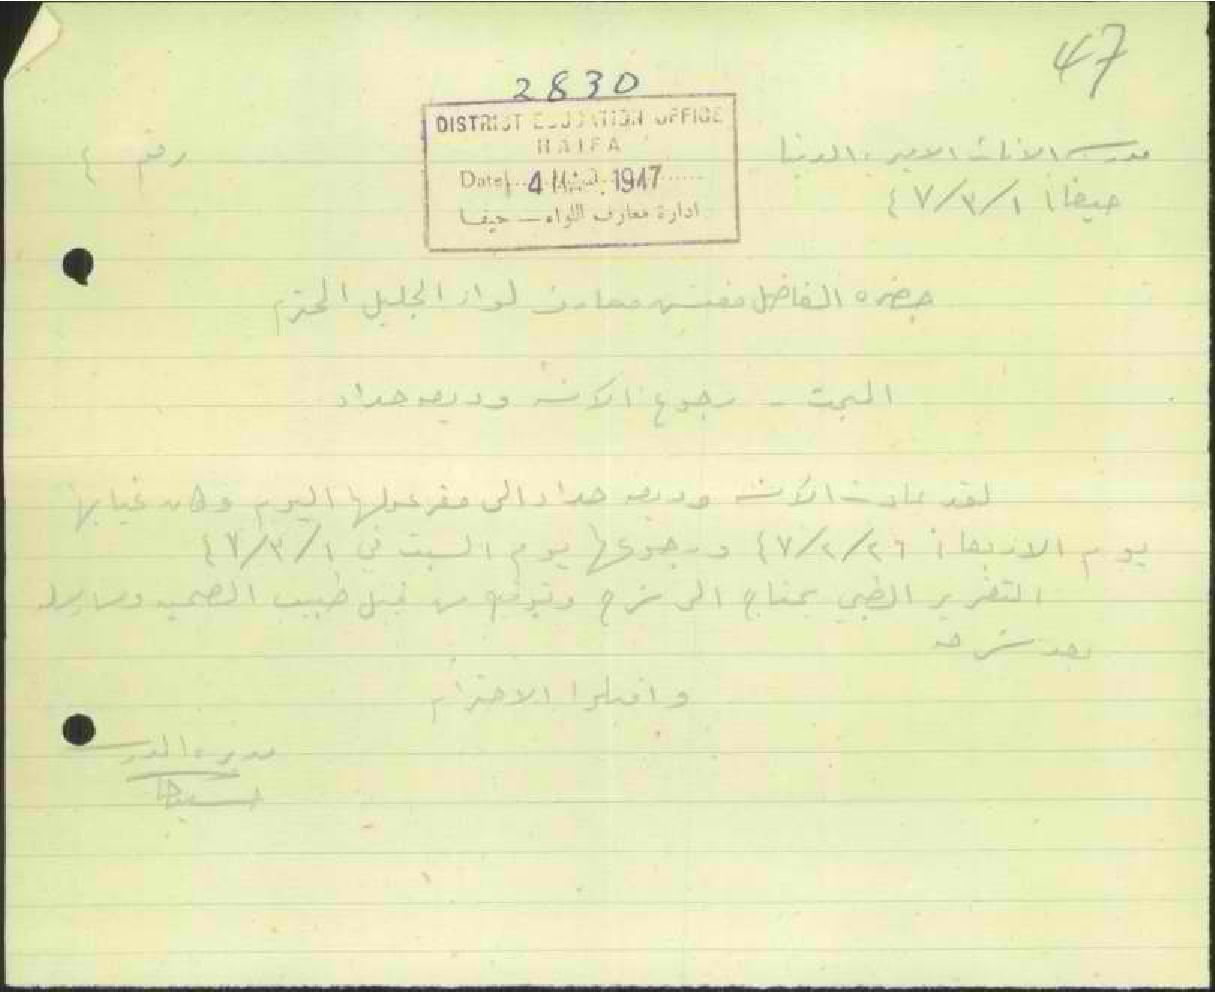 47
2830
DISTRICT EDUCATION OFFICE
HAIFA
Date 4 MAR 1947
ادارة معارف اللواء – حيفا
مدرسة الاناث الاميرية الدنيا
رقم ٤
حيفا ١/٣/٤٧
حضرة الفاضل مفتش معارف لواء الجليل المحترم
المبحث - رجوع الآنسة وديعه حداد
لقد عادت الآنسة وديعه حداد الى مفر عملها اليوم وكان غيابها
يوم الاربعاء ٢٦/٢/٤٧ ورجوعها يوم السبت في ١/٣/٤٧
التقرير الطبي يحتاج الى شرح وتوقيع من قبل طبيب الصحيه وسارسله
بعد شرحه
واقبلوا الاحترام
مديرة المدرسة